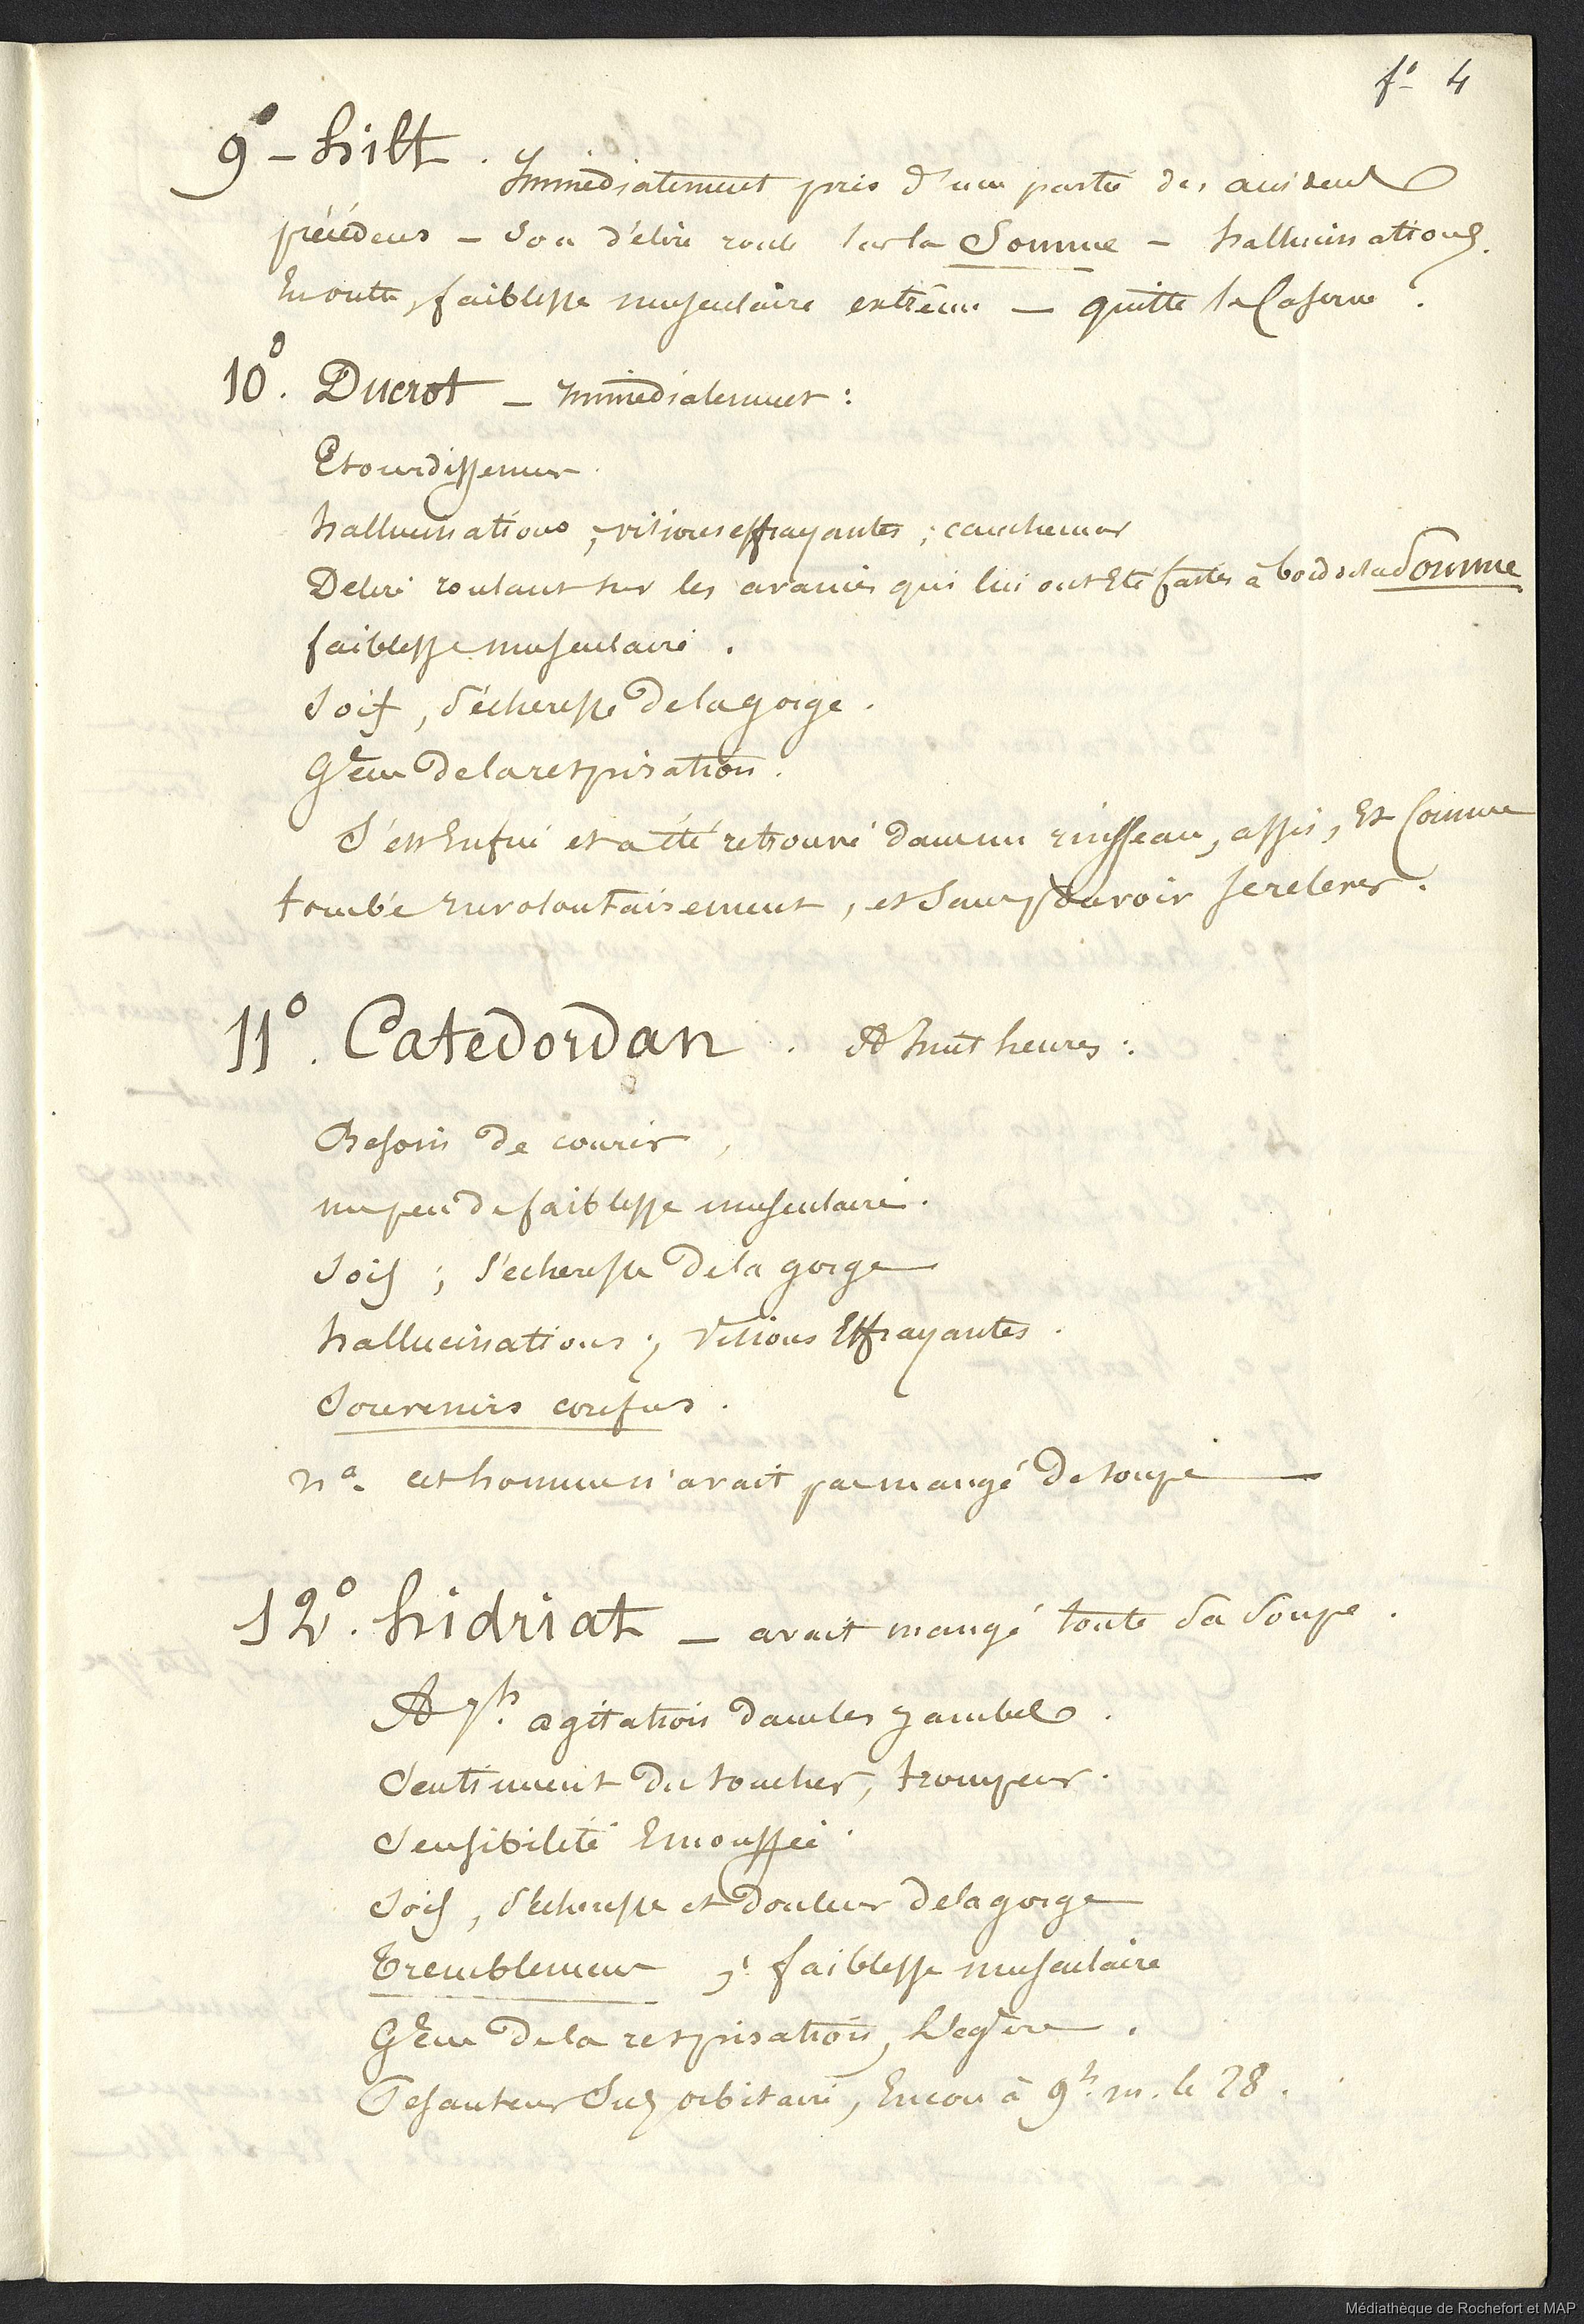 fº 4
9º - hilt. Immédiatement pris d'une partie des accidens
précédens - son délire roule sur la Somme - hallucinations.
En outre, faiblesse musculaire extrême - quitte la Caserne.
10º. Ducrot - Immédiatement :
Etourdissemens
hallucinations ; visions effrayantes ; cauchemar
Délire roulant sur les avanies qui lui ont été faites à bord de la Somme
faiblesse musculaire.
Soif, sécheresse de la gorge.
Gêne de la respiration.
S'est Enfui et a été retrouvé dans un ruisseau, assis, Et Comme
tombé involontairement, et sans pouvoir se relever.
11º. Catedordan. A huit heures :
Besoin de courir,
un peu de faiblesse musculaire.
Soif ; sécheresse de la gorge
hallucinations ; Visions Effrayantes.
Souvenirs confus.
Nª. cet homme n'avait pas mangé de soupe
12º. hidriat - avait mangé toute sa soupe.
A 7h. agitation dans les jambes.
Sentiment du toucher, trompeur.
Sensibilité Emoussée.
Soif, sécheresse et douleur de la gorge
Tremblemens ; faiblesse musculaire
Gêne de la respiration, Légère.
Pesanteur Sus orbitaire, Encore à 9h. m. le 28.
Médiathèque de Rochefort et MAP